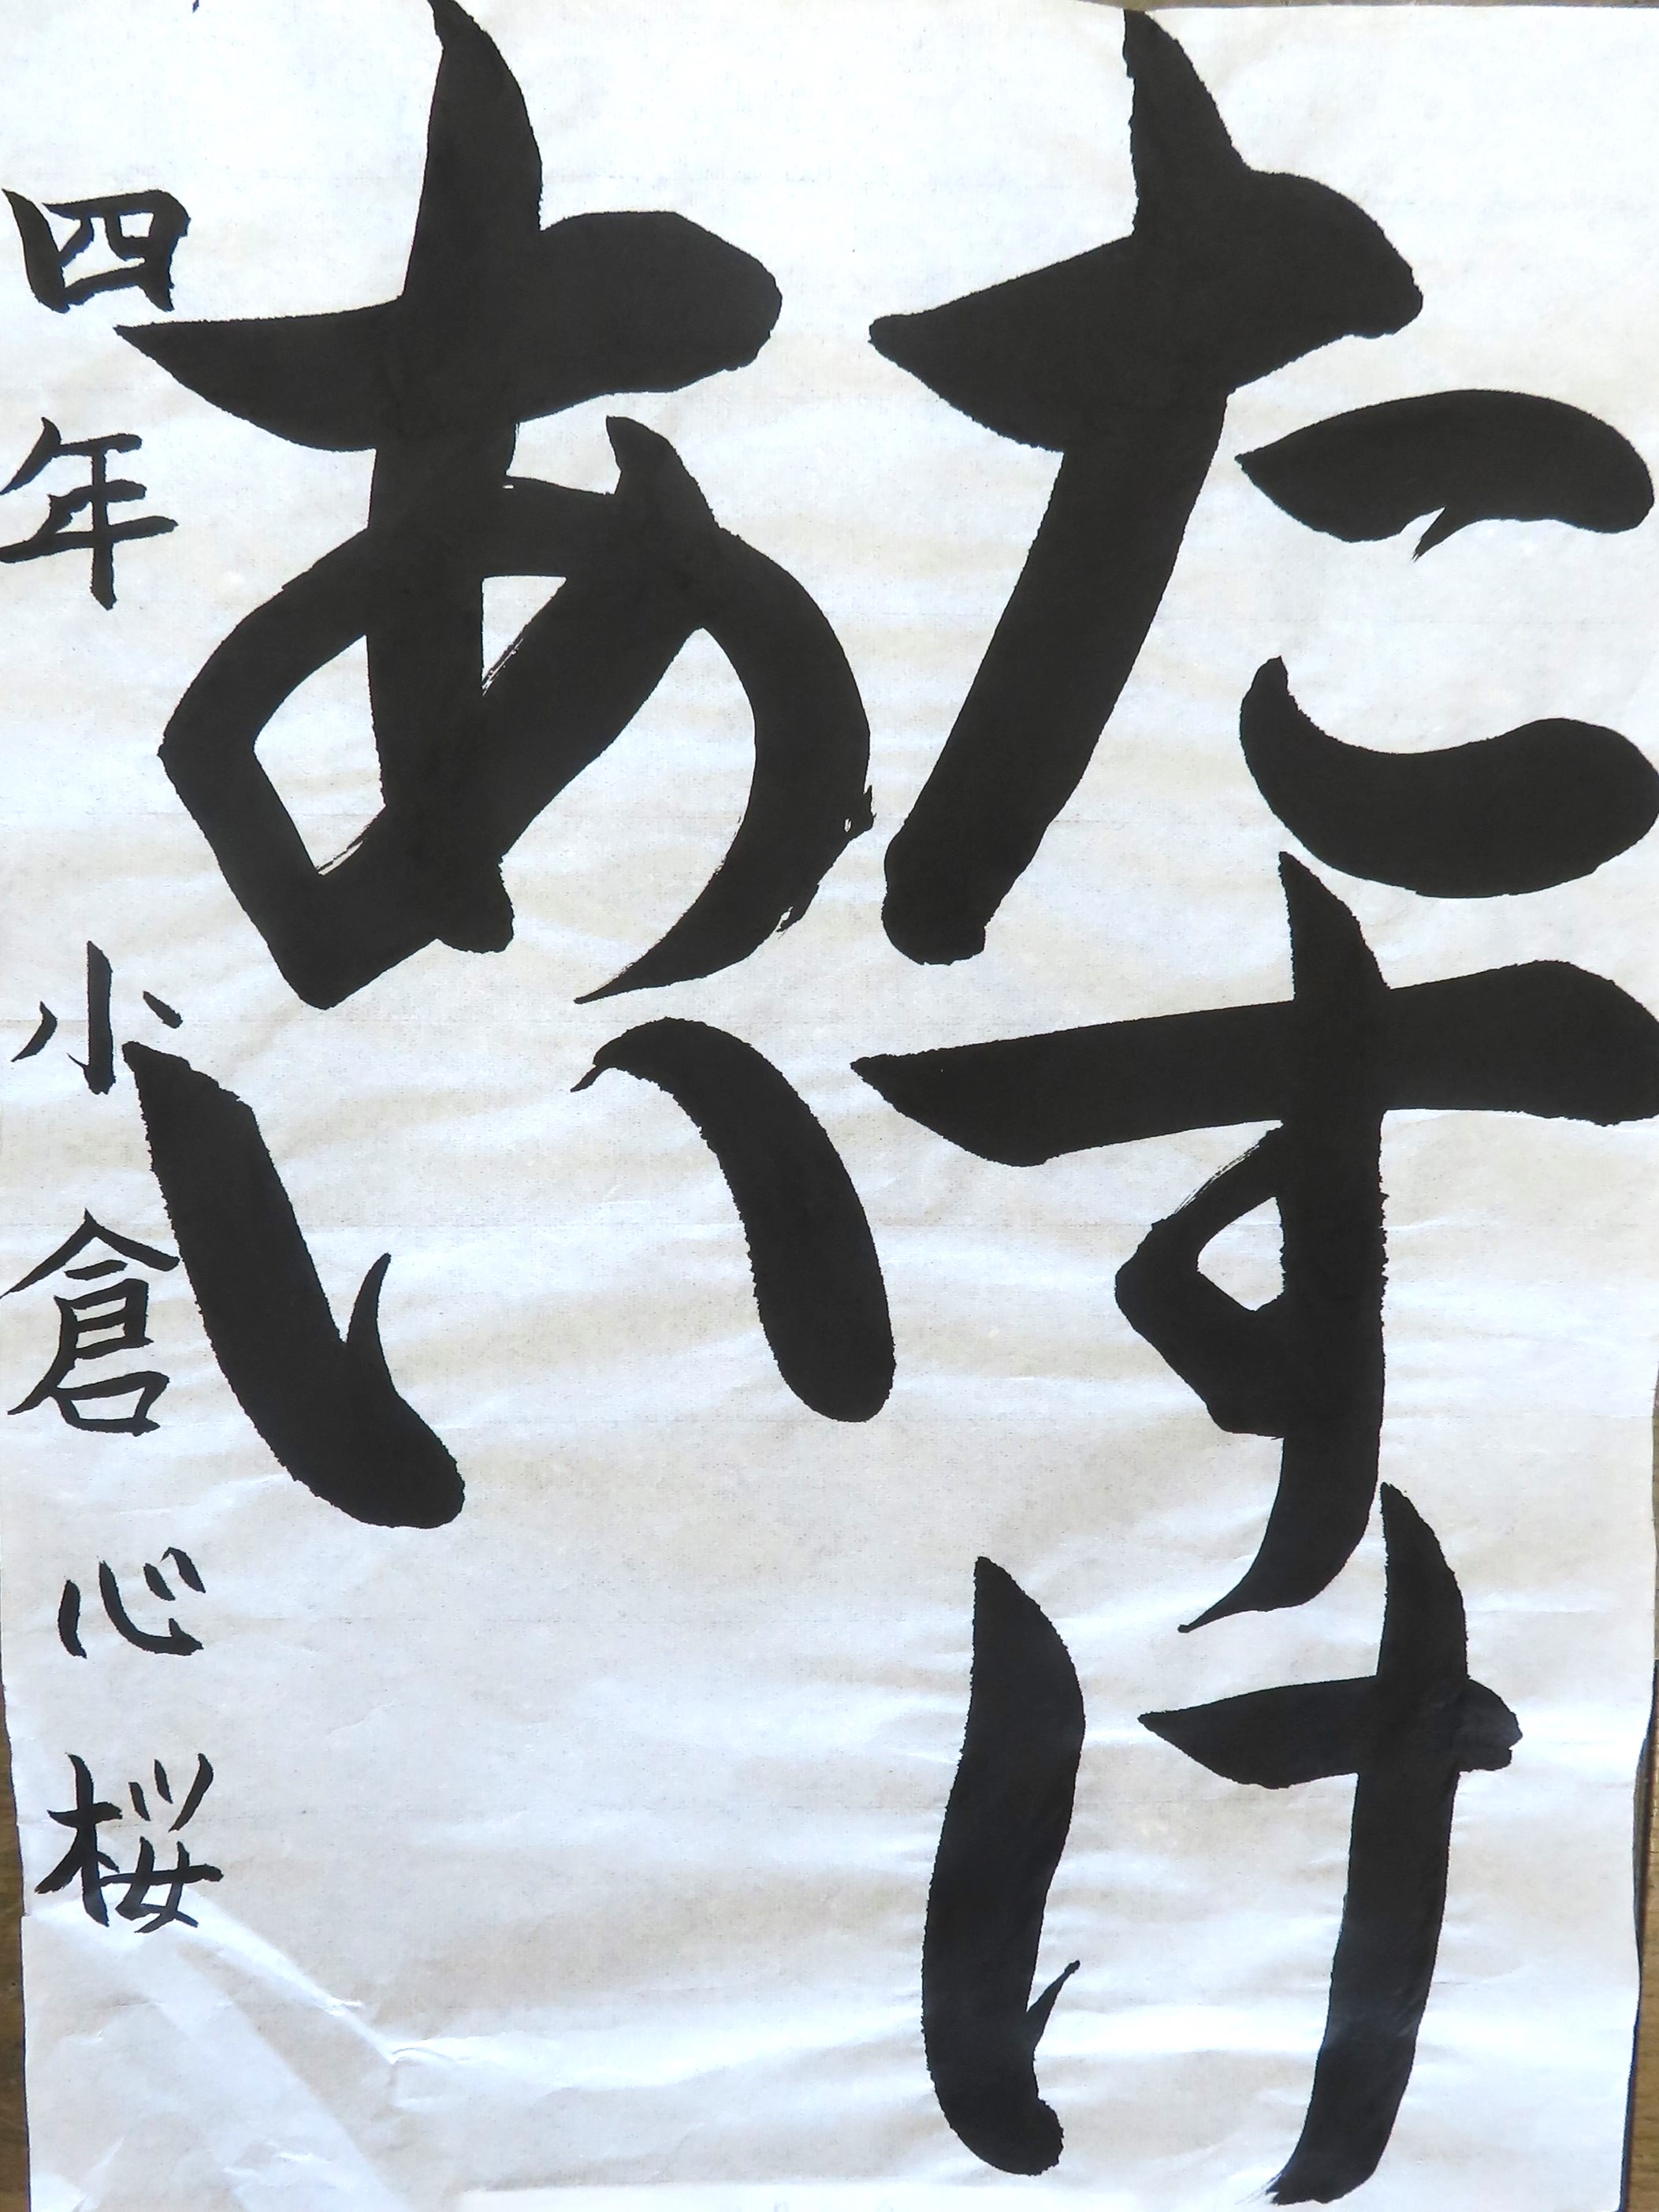 たすけ
あい
四年 小倉心桜